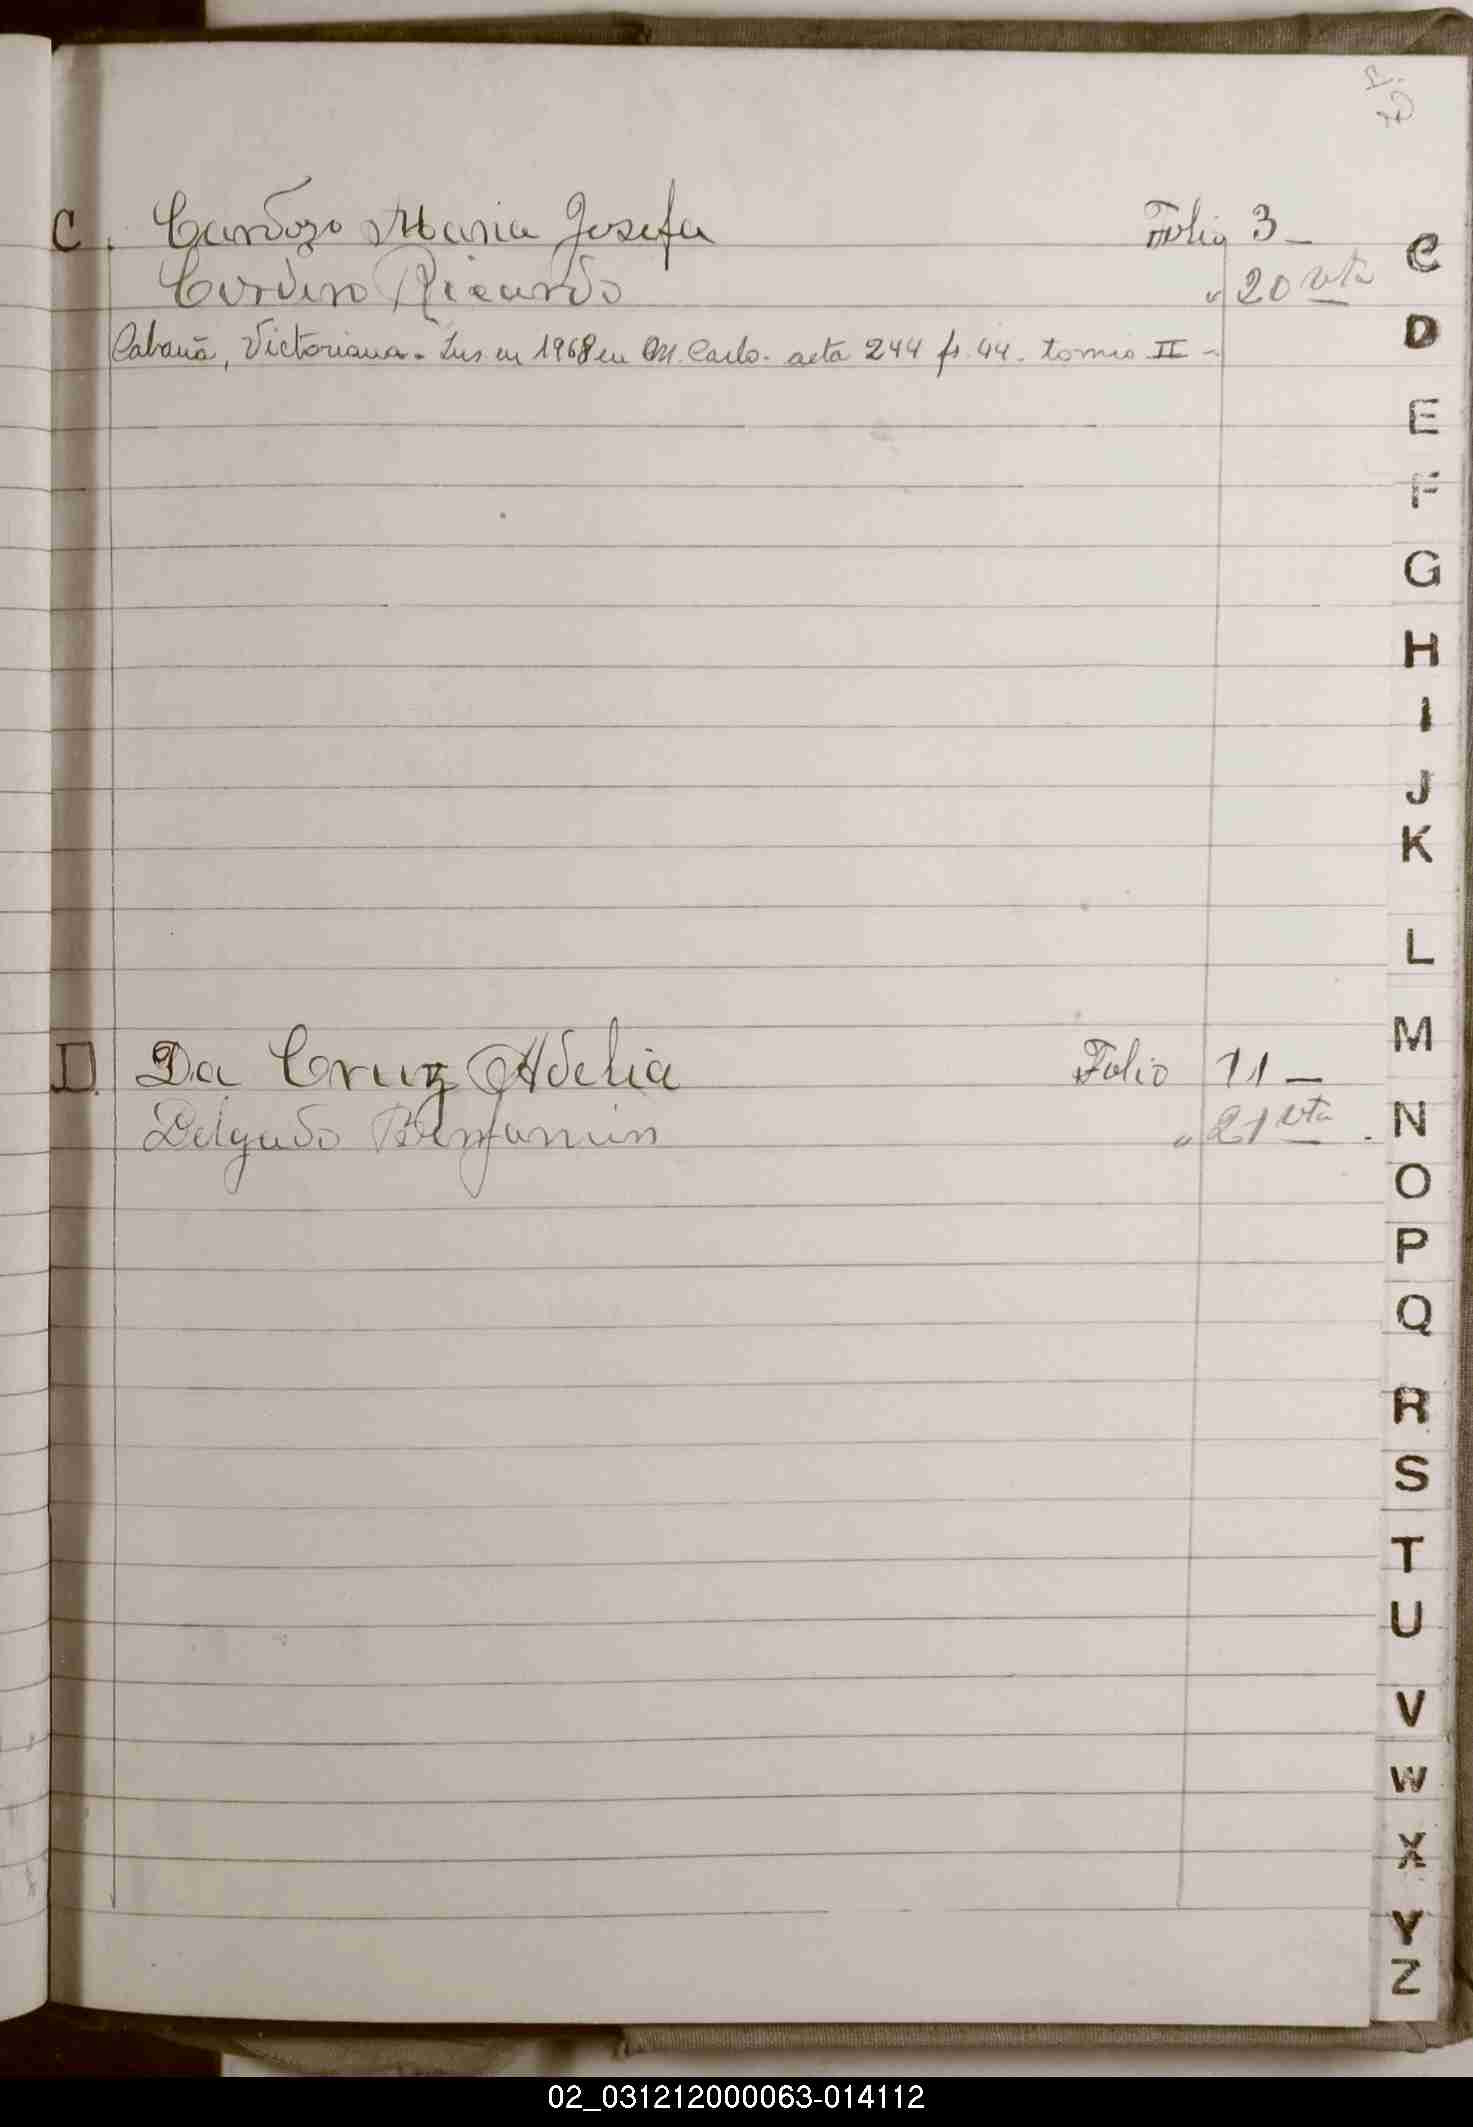 C. Cardozo Maria Josefa Folio 3 -
Cordero Ricardo " 20 vta
Cabaña, Victoriana. Ins. en 1968 en M. Carlo. acta 244 fs. 44. tomo II -
D. Da Cruz Adelia Folio 11 -
Delgado Benjamin " 21 vta.
C
D
E
F
G
H
I
J
K
L
M
N
O
P
Q
R
S
T
U
V
W
X
Y
Z
02_031212000063-014112